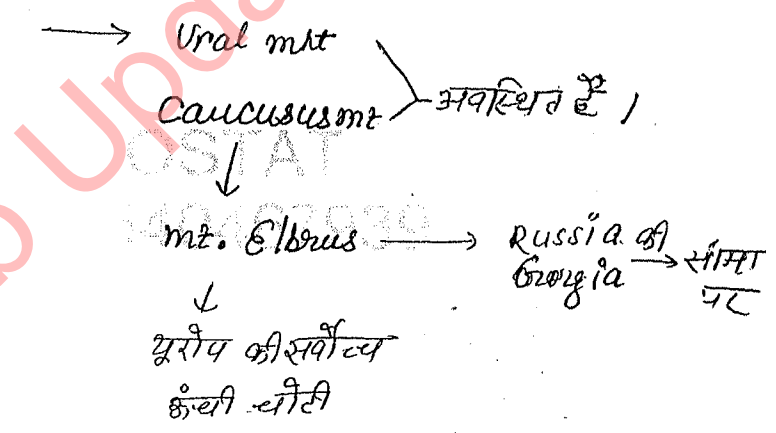 → Ural mnt
Caucusus mt
अवस्थित हैं ।
↓
mt. Elbrus → Russia की
Georgia → सीमा
पर
↓
यूरोप की सर्वोच्च
ऊंची चोटी
OSTAT
Upda
b